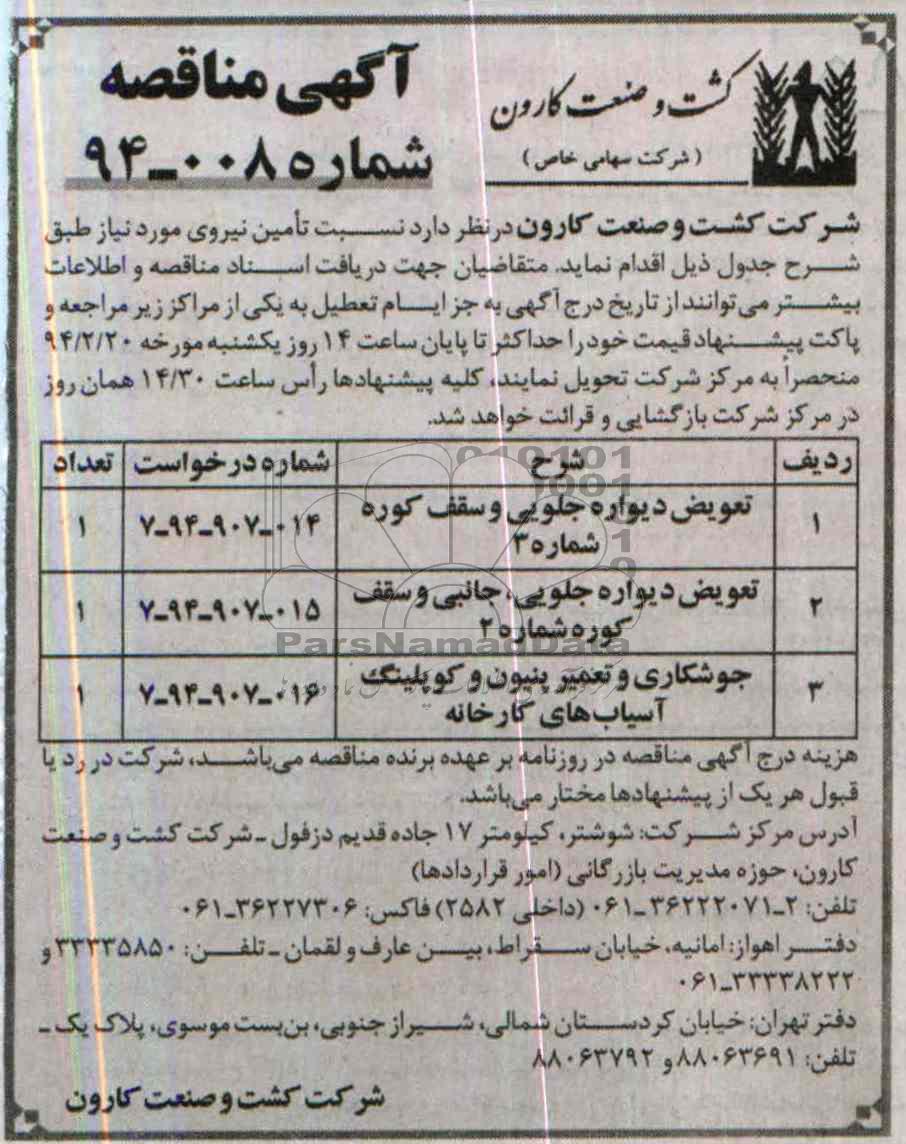 کشت و صنعت کارون
( شرکت سهامی خاص )
آگهی مناقصه
شماره ۰۰۸-۹۴
شرکت کشت و صنعت کارون درنظر دارد نسبت تأمین نیروی مورد نیاز طبق
شرح جدول ذیل اقدام نماید. متقاضیان جهت دریافت اسناد مناقصه و اطلاعات
بیشتر می‌توانند از تاریخ درج آگهی به جز ایام تعطیل به یکی از مراکز زیر مراجعه و
پاکت پیشنهاد قیمت خود را حداکثر تا پایان ساعت ۱۴ روز یکشنبه مورخه ۹۴/۲/۲۰
منحصراً به مرکز شرکت تحویل نمایند، کلیه پیشنهادها رأس ساعت ۱۴/۳۰ همان روز
در مرکز شرکت بازگشایی و قرائت خواهد شد.
ردیف شرح شماره درخواست تعداد
۱ تعویض دیواره جلویی و سقف کوره ۷-۹۴-۹۰۷-۰۱۴ ۱
شماره ۳
۲ تعویض دیواره جلویی، جانبی و سقف ۷-۹۴-۹۰۷-۰۱۵ ۱
کوره شماره ۲
۳ جوشکاری و تعمیر پنیون و کوپلینگ ۷-۹۴-۹۰۷-۰۱۶ ۱
آسیاب‌های کارخانه
ParsNamadData
هزینه درج آگهی مناقصه در روزنامه بر عهده برنده مناقصه می‌باشد، شرکت در رد یا
قبول هر یک از پیشنهادها مختار می‌باشد.
آدرس مرکز شرکت: شوشتر، کیلومتر ۱۷ جاده قدیم دزفول - شرکت کشت و صنعت
کارون، حوزه مدیریت بازرگانی (امور قراردادها)
تلفن: ۲-۳۶۲۲۲۰۷۱-۰۶۱ (داخلی ۲۵۸۲) فاکس: ۳۶۲۲۷۳۰۶-۰۶۱
دفتر اهواز: امانیه، خیابان سقراط، بین عارف و لقمان - تلفن: ۳۳۳۳۵۸۵۰ و
۳۳۳۳۸۲۲۲-۰۶۱
دفتر تهران: خیابان کردستان شمالی، شیراز جنوبی، بن‌بست موسوی، پلاک یک -
تلفن: ۸۸۰۶۳۶۹۱ و ۸۸۰۶۳۷۹۲
شرکت کشت و صنعت کارون